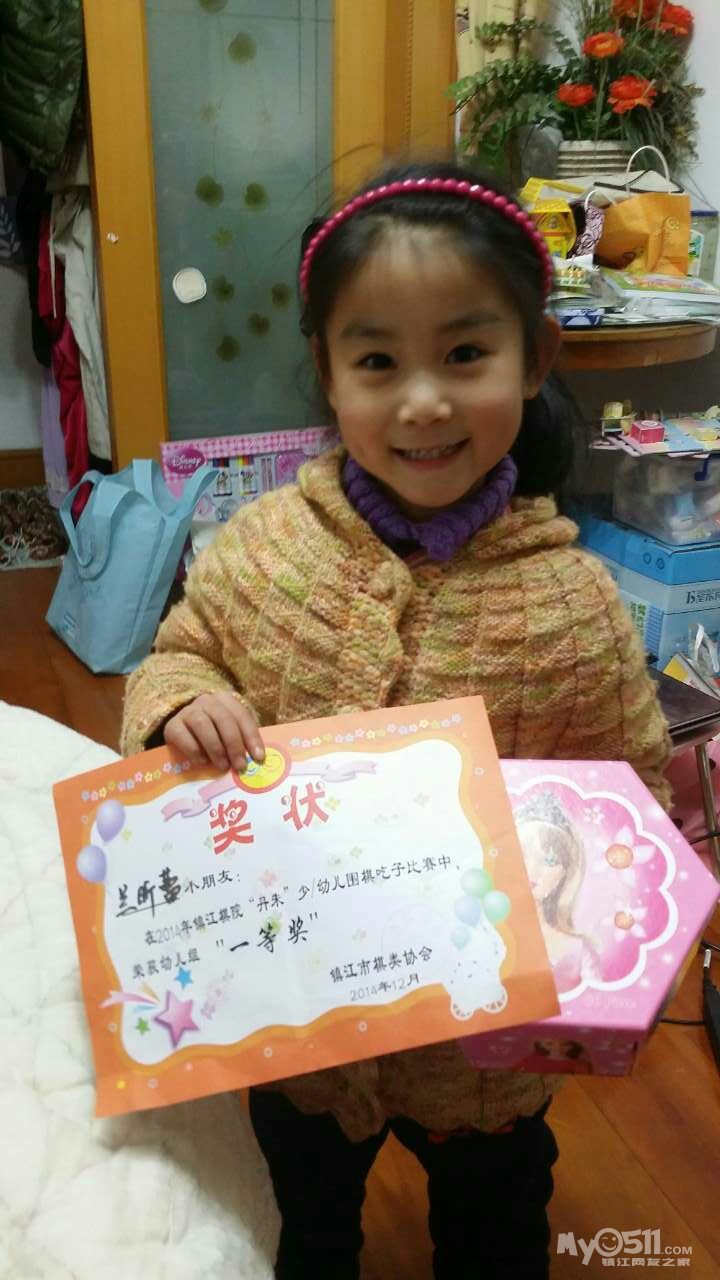 Disney
奖状
兰昕蕾小朋友：
在2014年镇江棋院“丹朱”少/幼儿围棋吃子比赛中，
荣获幼儿组 "一等奖"
镇江市棋类协会
2014年12月
My0511.COM
镇江网友之家